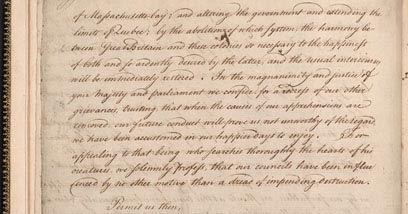 of Massachusetts-bay; and altering the government and extending the
limits of Quebec; by the abolition of which system, the harmony be-
tween Great Britain and these colonies so necessary to the happiness
of both and so ardently desired by the latter, and the usual intercourses
will be immediately restored. In the magnanimity and justice of
your majesty and parliament we confide for a redress of our other
grievances, trusting that when the causes of our apprehensions are
removed, our future conduct will prove us not unworthy of the regard
we have been accustomed in our happier days to enjoy. For
appealing to that being who searches thoroughly the hearts of his
creatures, we solemnly profess, that our councils have been influ
enced by no other motive than a dread of impending destruction.
Permit us then,